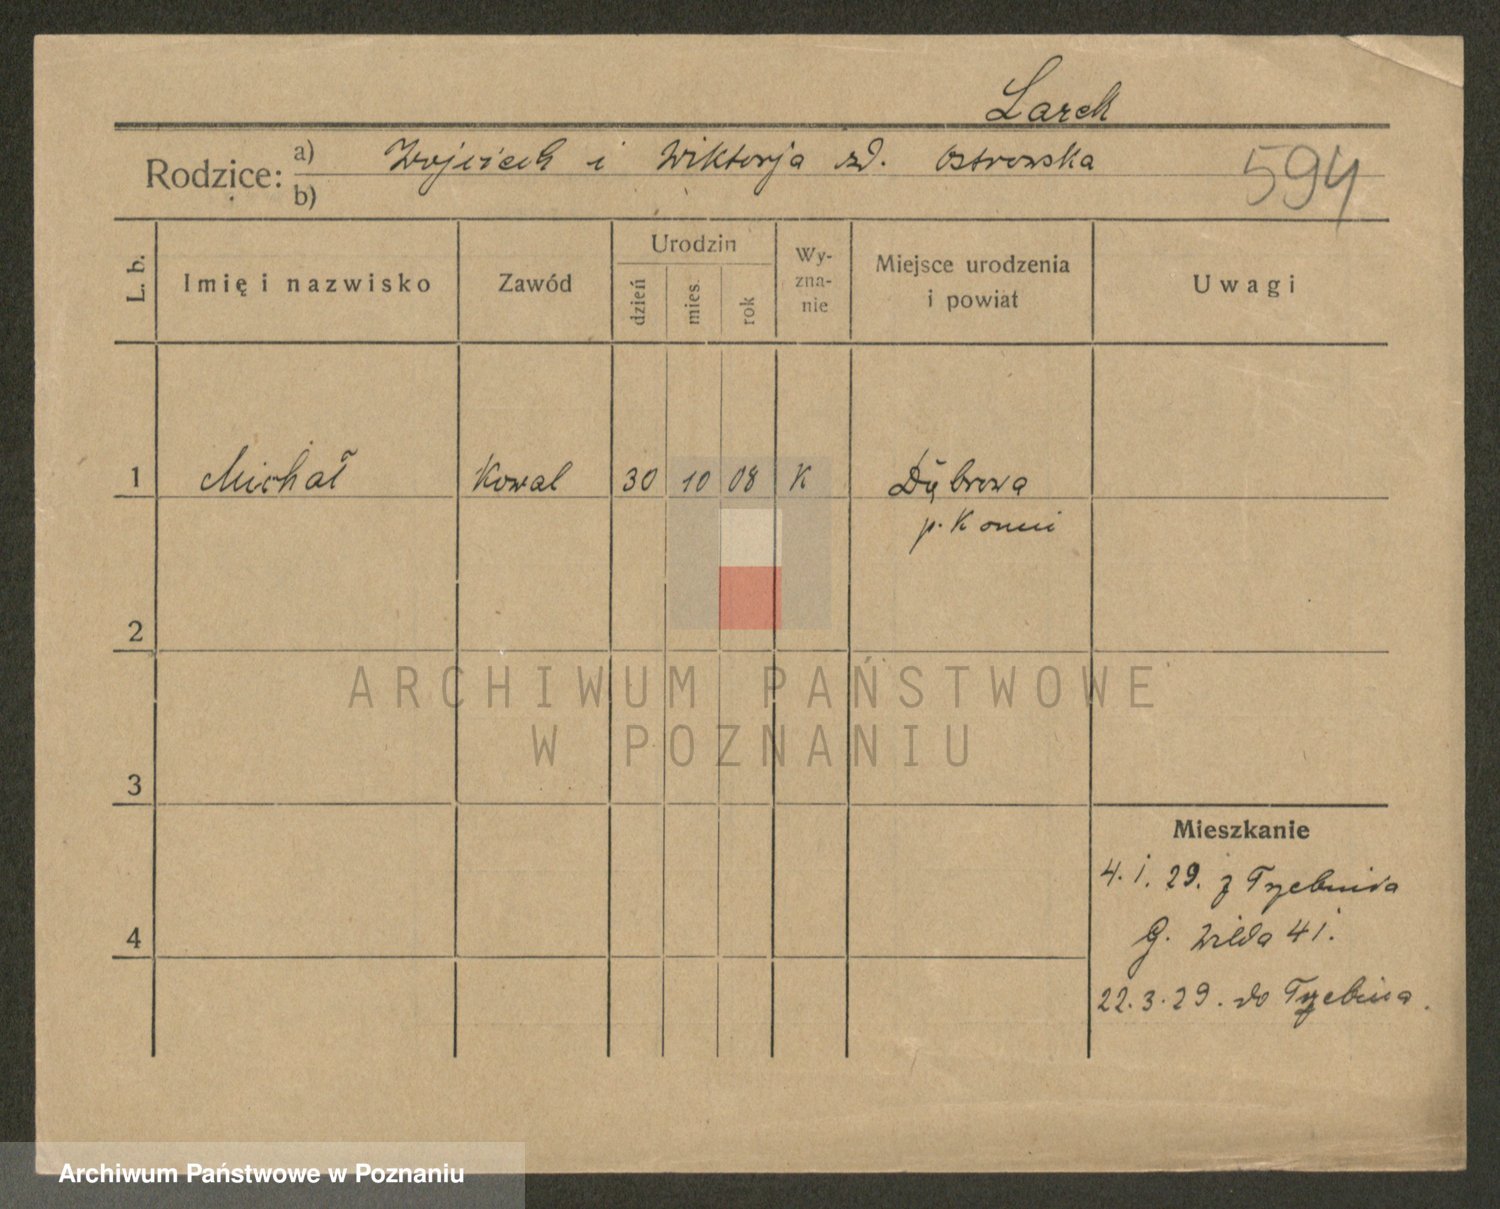 Larek
Rodzice: a) Wojciech i Wiktorja zd. Ostrowska
b)
594
L. b.
Imię i nazwisko
Zawód
Urodzin
dzień
mies.
rok
Wy-
zna-
nie
Miejsce urodzenia
i powiat
Uwagi
1 Michał Kowal 30 10 08 K Dąbrowa
p. Konin
2
3
4
Mieszkanie
4. 1. 29. z
G. Wilda 41.
22. 3. 29. do
ARCHIWUM PAŃSTWOWE
W POZNANIU
Archiwum Państwowe w Poznaniu